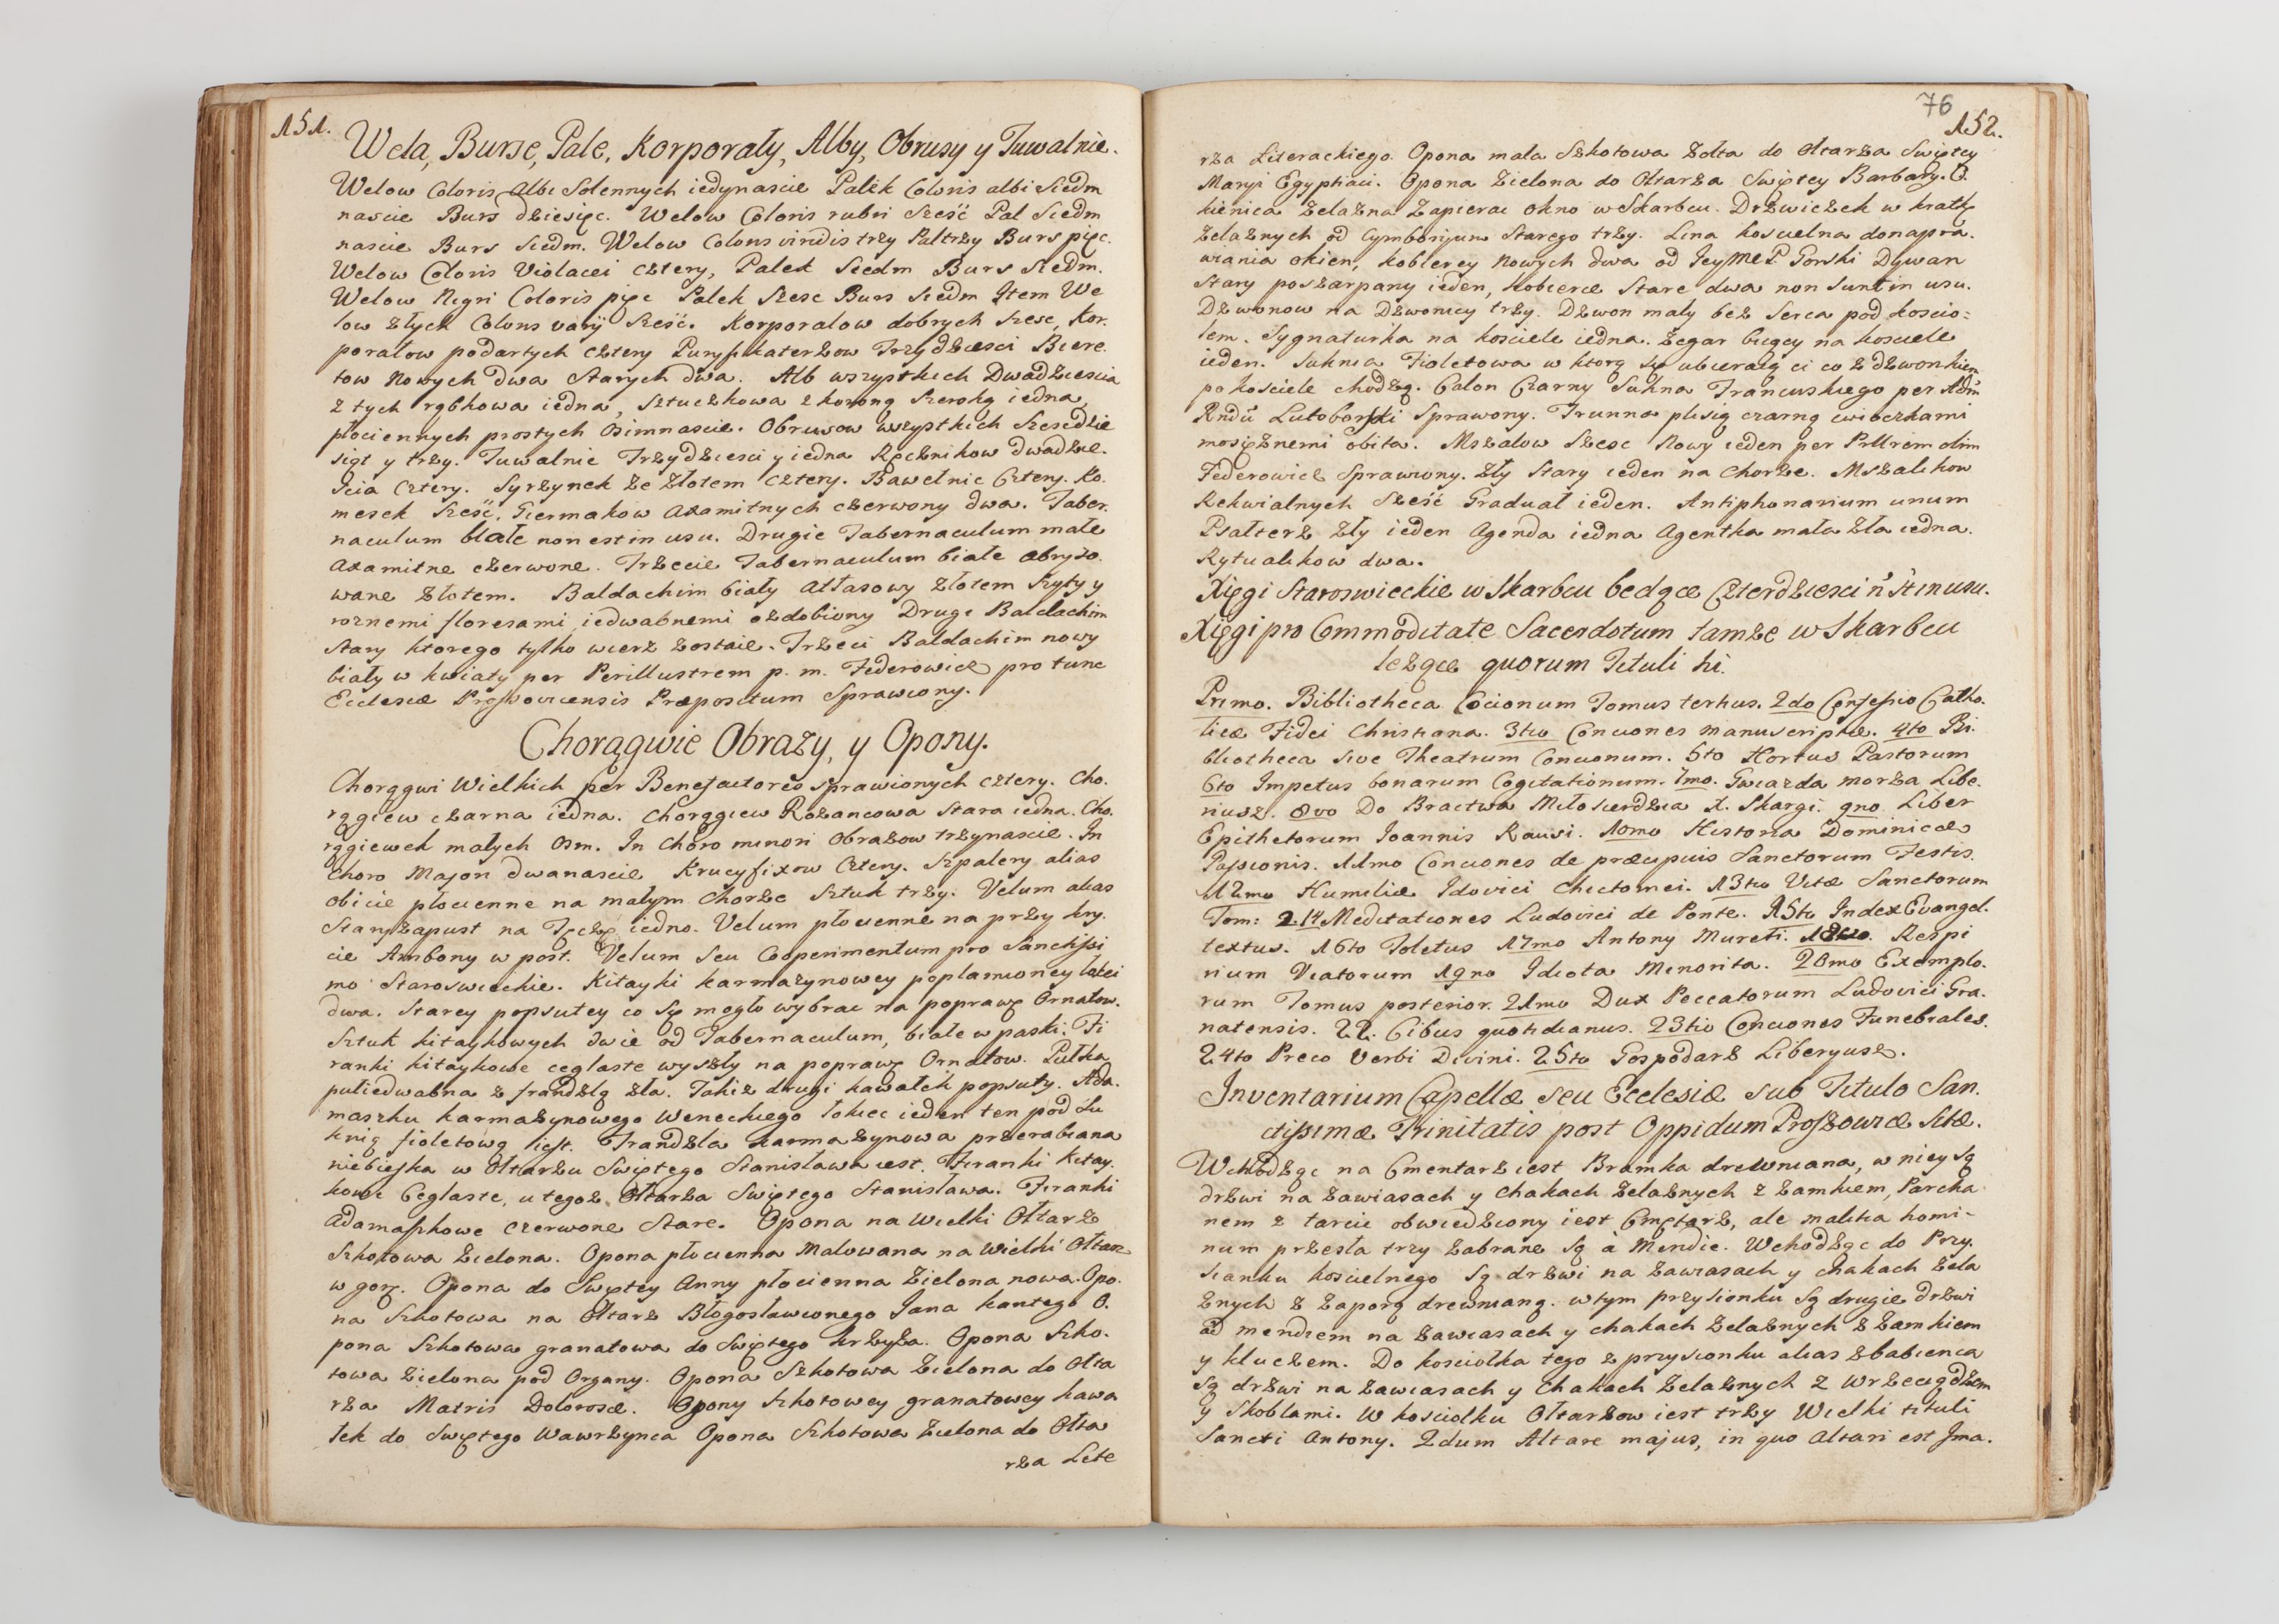 151.
Wela, Burse, Pale, Korporały, Alby, Obrusy y Tuwalnie.
Welow Coloris albi Solennych iedynascie Palek Coloris albi Siedm
nascie Burs dziesięc. Welow Coloris rubri Sześć Pal Siedm
nascie Burs Siedm. Welow Coloris viridis trzy Pal trzy Burs pięc.
Welow Coloris Violacei cztery, Palek Siedm Burs Siedm.
Welow Nigri Coloris pięc Palek Szesc Burs Siedm Item We
low złych Coloris varij Sześć. Korporalow dobrych Szesc, Kor.
poralow podartych cztery Puryfikaterzow Trzydziesci Biere.
tow Nowych dwa Starych dwa. Alb wszystkich Dwadziescia
z tych rąbkowa iedna, Sztuczkowa z koroną Szeroką iedna,
płociennych prostych Osimnascie. Obrusow wszystkich Szescdzie
sigt y trzy. Tuwalnie Trzydziesci y iedna Ręcznikow dwadzie.
scia Cztery. Syrzynek ze Złotem cztery. Bawełnic Cztery. Ko.
mesek Sześć. Giermakow axamitnych czerwony dwa. Taber.
naculum białe non est in usu. Drugie Tabernaculum małe
axamitne czerwone. Trzecie Tabernaculum białe obryzo.
wane złotem. Baldachim biały Atłasowy złotem Szyty y
roznemi floresami iedwabnemi ozdobiony Drugi Baldachim
Stary ktorego tylko wierz zostaie. Trzeci Baldachim nowy
biały w kwiaty per Perillustrem p. m. Federowicz pro tunc
Ecclesiæ Proszovicensis Præpositum Sprawiony.
Chorągwie Obrazy, y Opony.
Chorągwi Wielkich per Benefactores sprawionych cztery. Cho.
rągiew czarna iedna. Chorągiew Rożancowa Stara iedna. Cho.
rągiewek małych Osm. In Choro minori Obrazow trzynascie. In
Choro Majori dwanascie Krucyfixow Cztery. Szpalery alias
obicie płocienne na małym Chorze Sztuk trzy. Velum alias
Stary zapust na Tęczę iedno. Velum płocienne na przy kry.
cie Ambony w post. Velum Seu Cooperimentum pro Sanctissi
mo Staroswieckie. Kitayki karmazynowey poplamioney łokci
dwa. Starey popsutey co Się mogło wybrac na poprawę Ornatow.
Sztuk kitaykowych dwie od Tabernaculum, białe w paski. Fi
ranki kitaykowe ceglaste wyszły na poprawę Ornatow. Pułka
pułiedwabna z frandzlą zła. Takiz drugi kawałek popsuty. Ada.
maszku karmazynowego Weneckiego łokiec ieden ten pod Su
knią fioletową iest. Frandzla karmazynowa przerabiana
niebieska w Ołtarzu Swiętego Stanisława iest. Firanki Kitay.
kowe Ceglaste, u tegoż Ołtarza Swiętego Stanisława. Firanki
adamaszkowe czerwone Stare. Opona na Wielki Ołtarz
Szkotowa Zielona. Opona płocienna Malowana na Wielki Ołtarz
w gorę. Opona do Swiętey Anny płocienna Zielona nowa. Opo.
na Szkotowa na Ołtarz Błogosławionego Jana Kantego O.
pona Szkotowa granatowa do Swiętego Krzyża. Opona Szko.
towa Zielona pod Organy. Opona Szkotowa Zielona do Ołta
rza Matris Dolorosæ. Opony Szkotowey granatowey kawa
łek do Swiętego Wawrzynca Opona Szkotowa Zielona do Ołta
rza Lite
76
152.
rza Literackiego. Opona mała Szkotowa Zołta do Ołtarza Swiętey
Maryi Egyptiaci. Opona Zielona do Ołtarza Swiętey Barbary. O.
kienica Zelazna Zapierac okno w Skarbcu. Drzwiczek w kratkę
Zelaznych od Cymborijum Starego trzy. Lina koscielna do napra.
wiania okien, koblercy Nowych dwa od Jey Mci P Gorski Dywan
Stary poszarpany ieden, kobierce Stare dwa non Sunt in usu.
Dzwonow na Dzwonicy trzy. Dzwon mały bez Serca pod koscio:
łem. Sygnaturka na kosciele iedna. Zegar biegcy na kosciele
ieden. Suknia Fioletowa w ktorą Się ubieraią ci co z dzwonkiem
po kosciele chodzą. Całon Czarny Sukna Francuskiego per Adm
Rndũ Lutoborski Sprawony. Trunna plisią czarną cwieczkami
mosiężnemi obita. Mszałow Szesc Nowy ieden per Prllrem olim
Federowicz Sprawiony. Zły Stary ieden na Chorze. Mszalikow
Rekwialnych Sześć Graduał ieden. Antiphonarium unum
Psałterz Zły ieden Agenda iedna Agentka mała Zła iedna.
Rytualikow dwa.
Xięgi Staroswieckie w Skarbcu będące Czterdziesci ñ st in usu.
Xięgi pro Commoditate Sacerdotum tamze w Skarbcu
leżące quorum Tituli hi.
Primo. Bibliotheca Cocionum Tomus tertius. 2do Confessio Catho.
licæ Fidei Christiana. 3tio Conciones manuscriptæ. 4to Bi.
bliotheca sive Theatrum Concionum. 5to Hortus Pastorum
6to Impetus bonarum Cogitationum. 7mo. Gwiazda morza Libe.
riusz. 8vo Do Bractwa Miłosierdzia X. Skargi. 9no Liber
Epithetorum Joannis Ravisi. 10mo Historia Dominicæ
Passionis. 11mo Conciones de præcipuis Sanctorum Festis.
12mo Humiliæ Idovici Chictomei. 13tio Vitæ Sanctorum
Tom: 2. 14 Meditationes Ludovici de Ponte. 15to Index Evangel.
textus. 16to Toletus 17mo Antony Mureti. 18vo. Respi
rium Viatorum 19no Idiota Minorita. 20mo Exemplo.
rum Tomus posterior. 21mo Dux Peccatorum Ludovici Gra.
natensis. 22. Cibus quotidianus. 23tio Conciones Funebrales.
24to Preco Verbi Divini. 25to Gospodarz Liberyusz.
Inventarium Capellæ seu Ecclesiæ sub Titulo San.
ctissimæ Trinitatis post Oppidum Proszowiæ Sitæ.
Wchodząc na Cmentarz iest Bramka drewniana, w niey Są
drzwi na zawiasach y chakach Zelaznych z zamkiem, Parcha
nem z tarcic obwiedziony iest Cmętarz, ale malitia homi-
num przesła trzy zabrane Są à Meridie. Wchodząc do Przy.
sianku koscielnego Są drzwi na zawiasach y chakach Zela
znych z zaporą drewnianą. w tym przysionku Są drugie drzwi
ad meridiem na zawiasach y chakach Zelaznych z zamkiem
y kluczem. Do kosciołka tego z przysionku alias z babienca
Są drzwi na zawiasach y Chakach Zelaznych z wrzeciądzem
y Skoblami. W kosciołku Ołtarzow iest trzy Wielki tituli
Sancti Antony. 2dum Altare majus, in quo Altari est Ima.